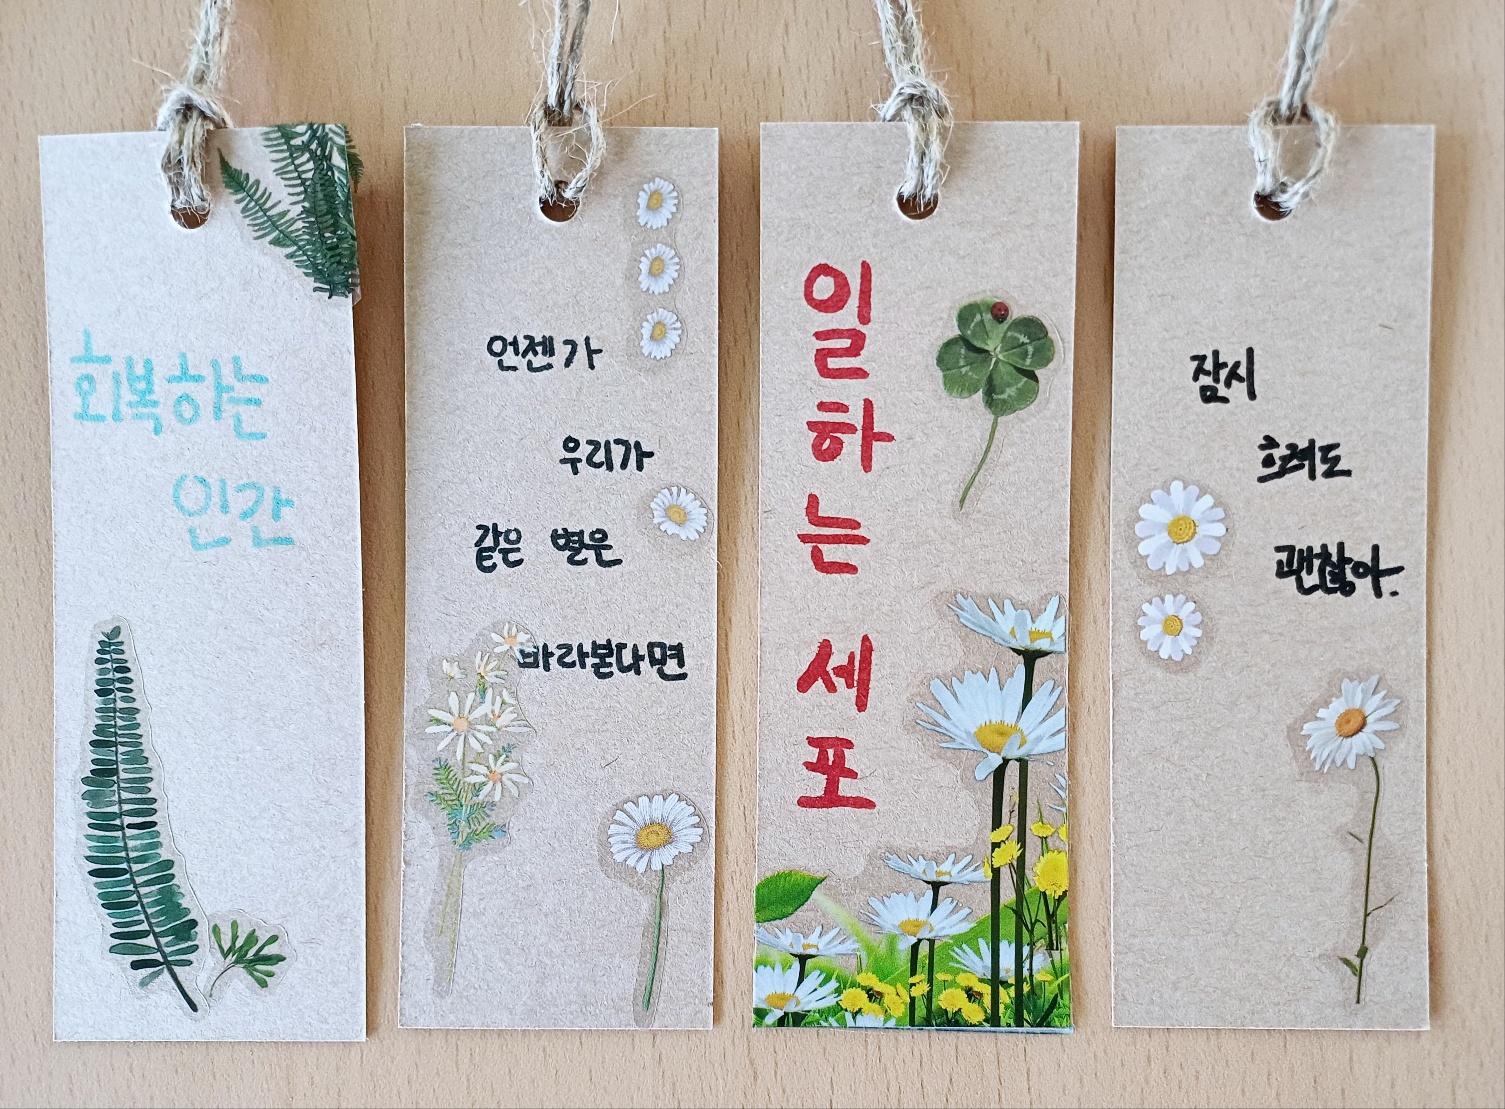 회복하는
인간
언젠가
우리가
같은 별은
바라본다면
일하는 세포
잠시
흐려도
괜찮아.